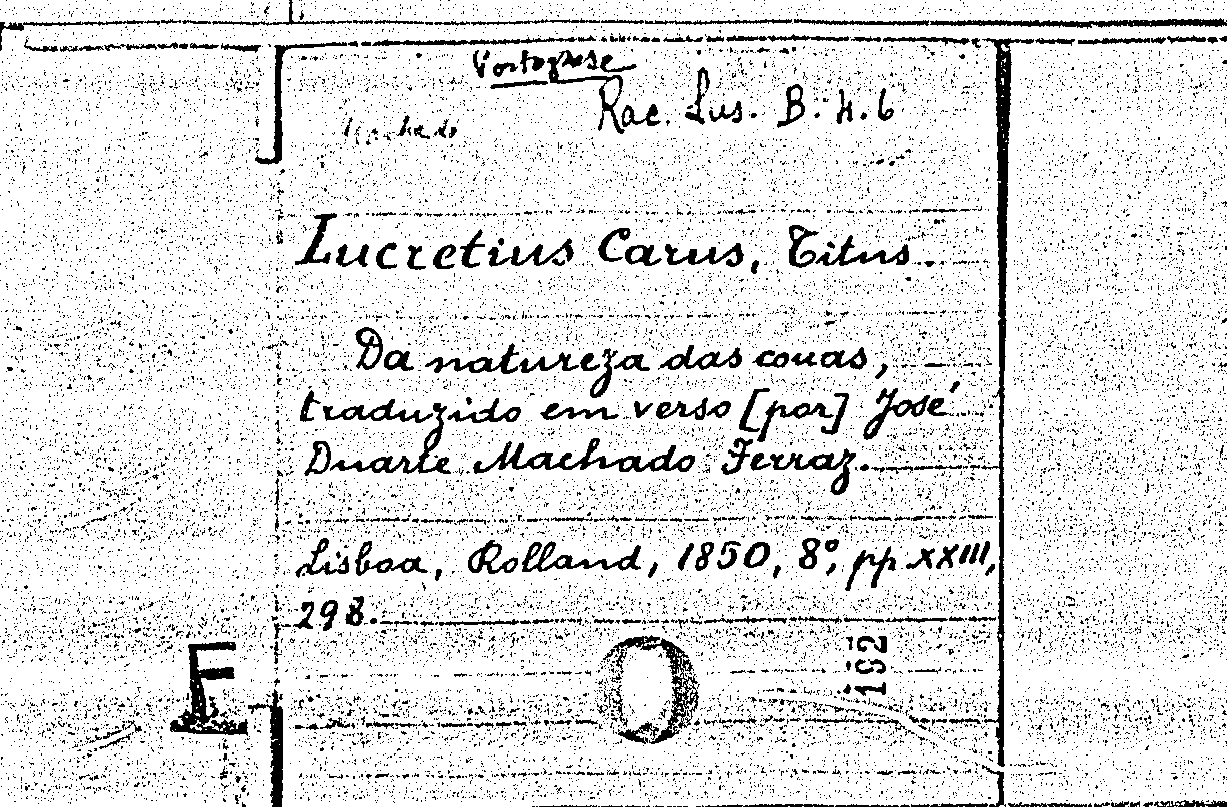 Portuguese
Rac. Lus. B. 4. 6
Machado
Lucretius Carus, Titus.
Da natureza das couas,
traduzido em verso [por] José
Duarte Machado Ferraz.
Lisboa, Rolland, 1850, 8°, pp XXIII,
298.
162
F